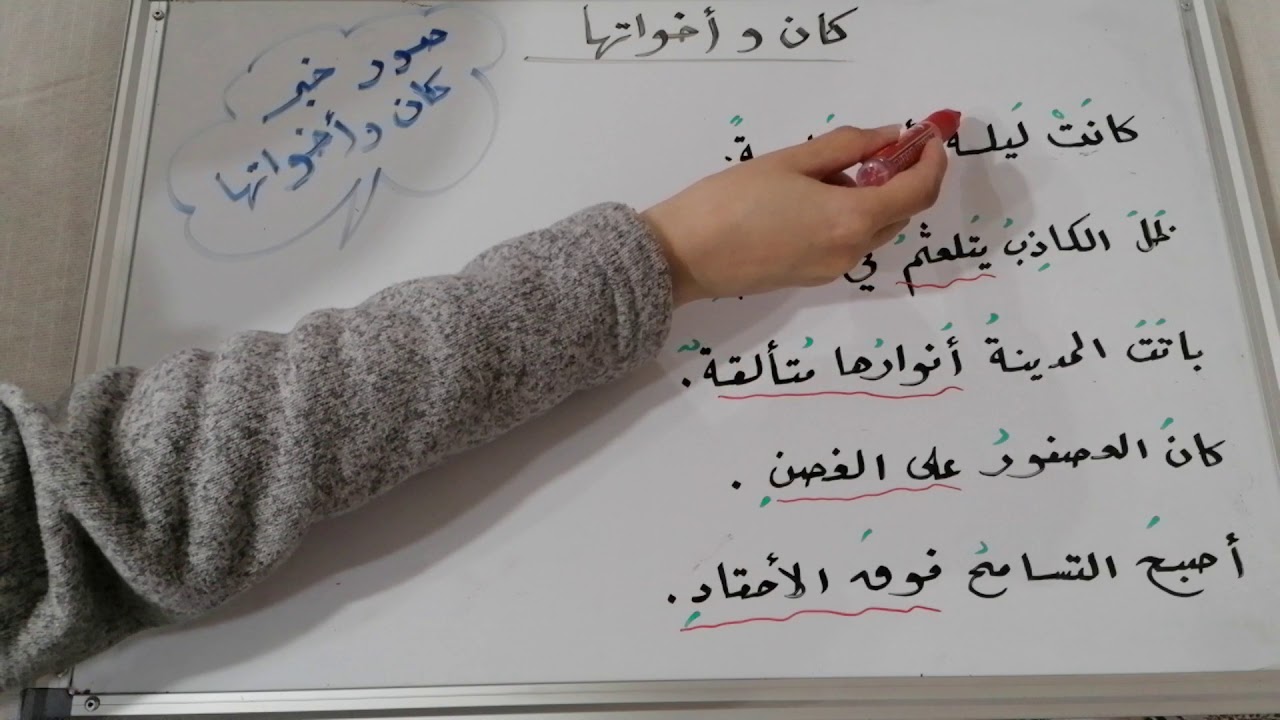 كان و أخواتها
صور خبر
كان و أخواتها
كانَتْ لَيلة
ظَلَّ الكاذِبُ يَتلعثمُ في
باتَتَ المدينةُ أَنوارُها مُتألقةٌ.
كانَ العصفورُ على الغصنِ.
أصبحَ التسامحُ فوقَ الأحقادِ.